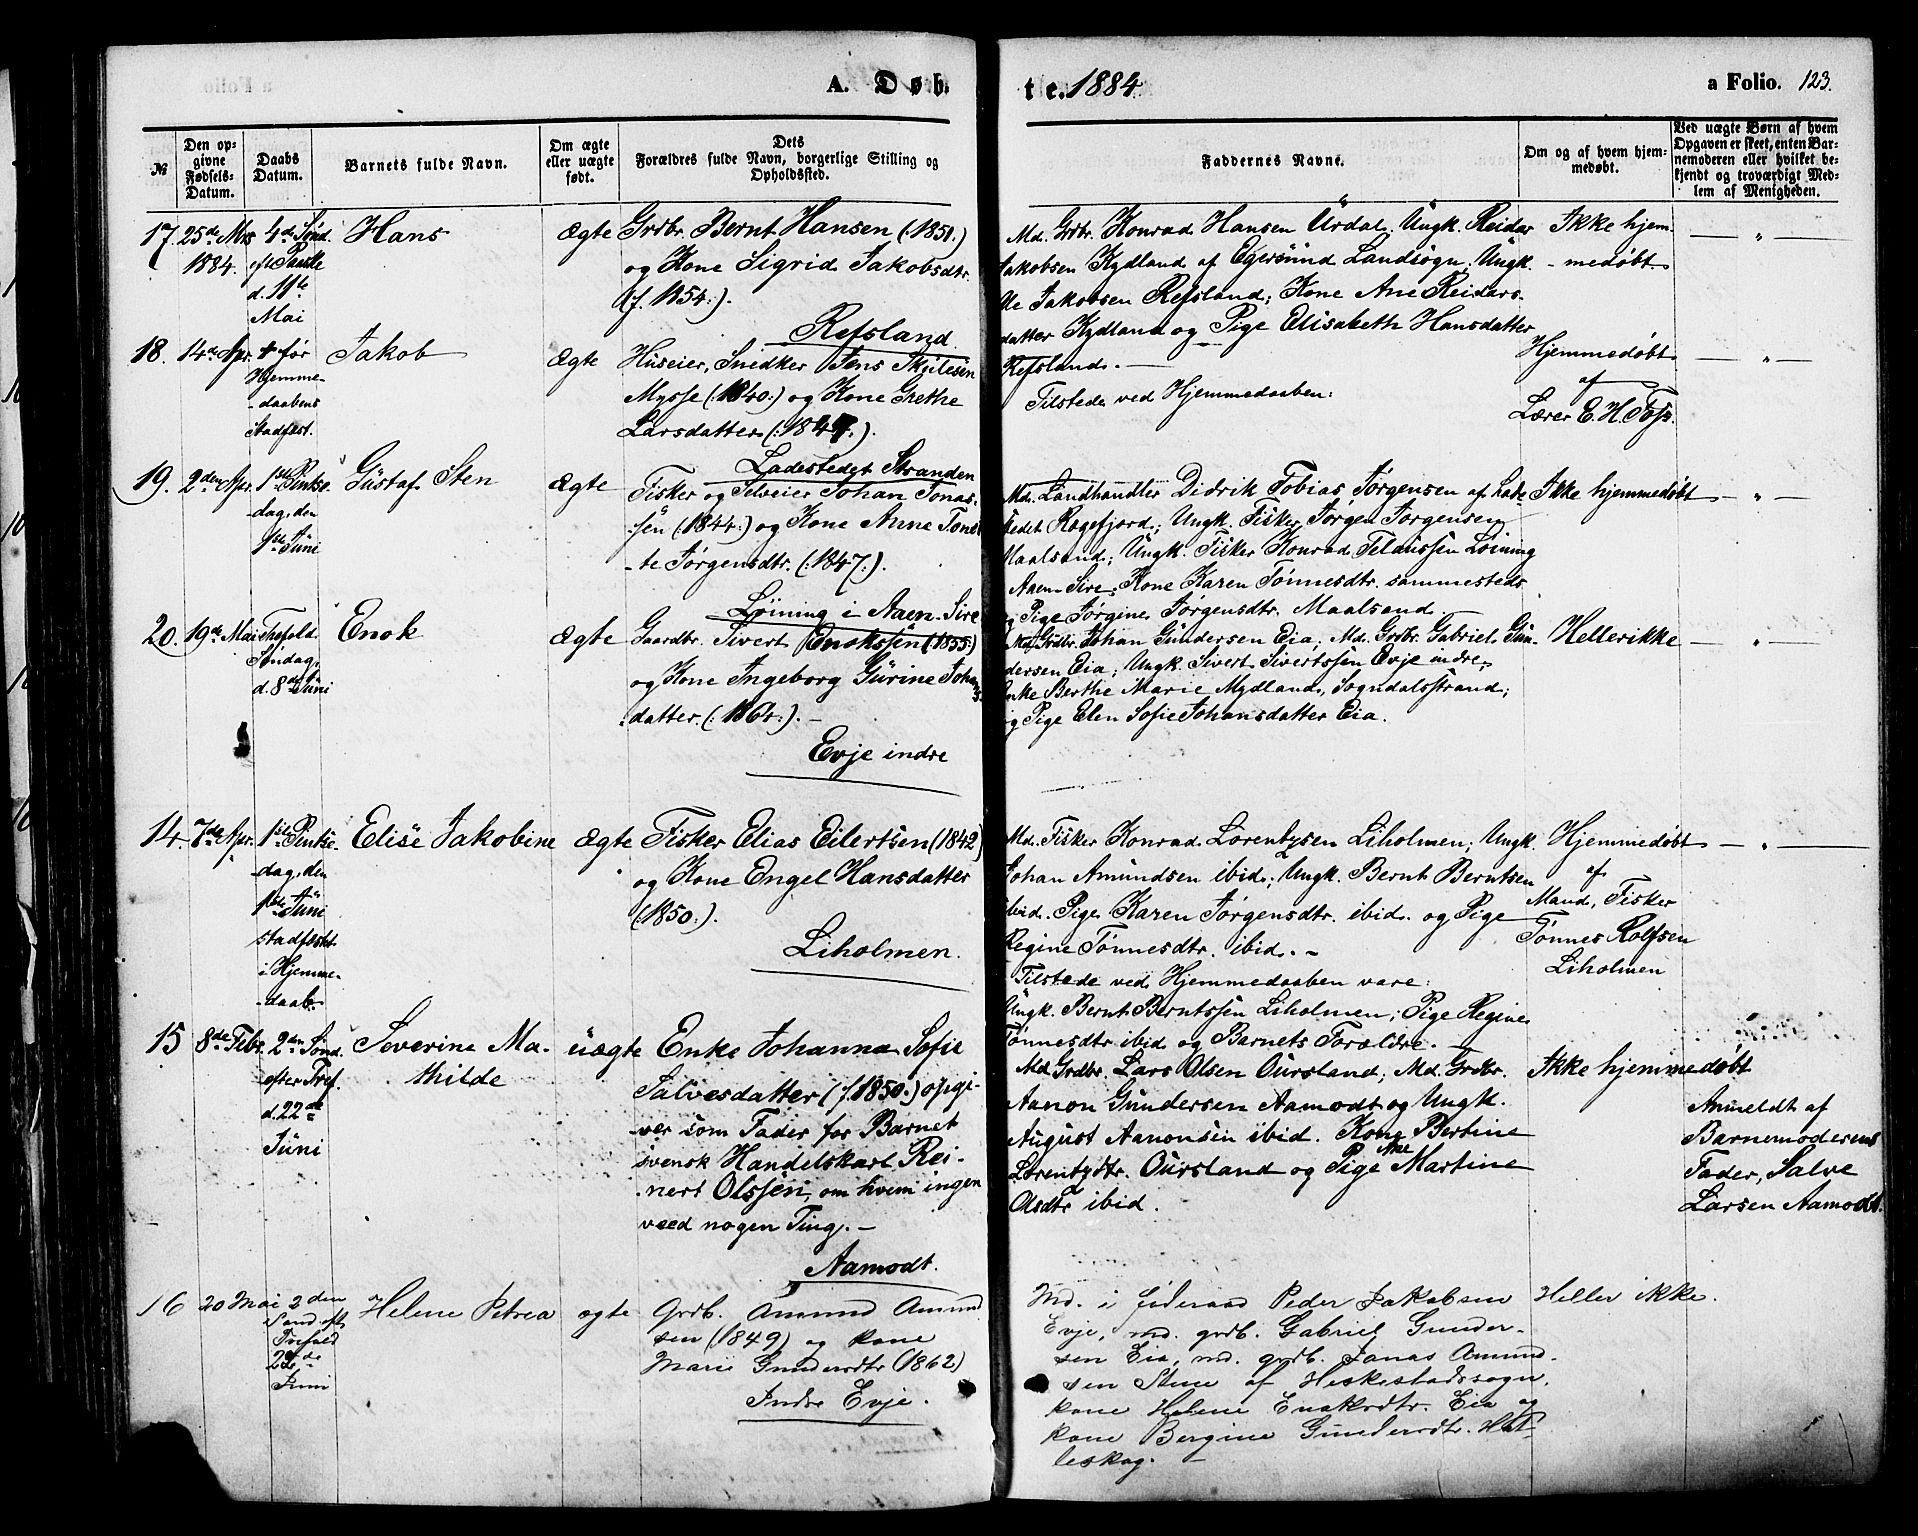 A. Døb
te. 1884
a Folio. 123.
№
Den op-
givne
Fødsels-
Datum.
Daabs
Datum.
Barnets fulde Navn.
Om ægte
eller uægte
født.
Dets
Forældres fulde Navn, borgerlige Stilling og
Opholdsted.
Faddernes Navne.
Om og af hvem hjem-
medøbt.
Ved uægte Børn af hvem
Opgaven er skeet, enten Bar-
nemoderen eller hvilket be-
kjendt og troværdigt Med-
lem af Menigheden.
17. 25de Mrs
1884.
4de Sønd.
eft. Paaske
d. 11te
Mai
Hans
Ægte
Grdbr. Bernt Hansen (:1851.)
og Kone Sigrid Jakobsdtr.
(f. 1854:).
Refsland.
Md. Grdbr. Konrad Hansen Urdal, Ungk. Reidar
Jakobsen Kydland af Egersund Landsogn, Ungk.
Ole Jakobsen Refsland; Kone Ane Reidars-
datter Kydland og Pige Elisabeth Hansdatter
Refsland. —
Ikke hjem-
medøbt.
— „ —
18. 14de Apr.
+ før
Hjemme-
daabens
stadfest.
Jakob
Ægte
Huseier, Snedker Jens Skjilesen
Mysse (:1840:) og Kone Grethe
Larsdatter (:1847:).
Ladestedet Stranden
Tilstede ved Hjemmedaaben:
Hjemmedøbt
af
Lærer E. H. Foss.
— „ —
19. 2den Apr.
1ste Pintse-
dag, den
1ste Juni
Gustaf Sten
Ægte
Fisker og Selveier Johan Jonas-
sen (:1844:) og Kone Anne Tone-
te Jørgensdtr. (:1847:).
Løining i Aaen Sire
Md. Landhandler Didrik Tobias Jørgensen af Lade-
stedet Rægefjord; Ungk. Fisker Jørgen Jørgensen
Maalsand; Ungk. Fisker Konrad Telaussen Løining
Aaen Sire, Kone Karen Tønnesdtr. sammesteds
og Pige Jørgine Jørgensdtr. Maalsand.
Ikke hjemmedøbt
— „ —
20. 19de Mai
Trefold.
Søndag,
d. 8de Juni
Enok
Ægte
Gaardbr. Sivert Enokssen (:1855:)
og Kone Ingeborg Gurine Johans-
datter (:1864:). —
Evje indre
Md. Grdbr. Johan Gundersen Eia; Md. Grdbr. Gabriel Gun-
dersen Eia; Ungk. Sivert Sivertssen Evje indre,
Enke Berthe Marie Mydland, Sogndalsstrand;
og Pige Elen Sofie Johansdatter Eia.
Hellerikke
— „ —
14. 7de Apr.
1ste Pintse-
dag, den
1ste Juni
stadfæstet
i Hjemme-
daab.
Elise Jakobine
Ægte
Fisker Elias Eilertsen (1842)
og Kone Engel Hansdatter
(:1850:).
Liholmen.
Md. Fisker Konrad Lorentzsen Liholmen; Ungk.
Johan Amundsen ibid; Ungk. Bernt Berntsen
ibid. Pige Karen Jørgensdtr. ibid. og Pige
Regine Tønnesdtr. ibid. —
Tilstede ved Hjemmedaaben vare:
Ungk. Bernt Berntssen Liholmen; Pige Regine
Tønnesdtr ibid og Barnets Forældre. —
Hjemmedøbt
af
Mand, Fisker
Tønnes Rolfsen
Liholmen
— „ —
15 8de Febr.
2den Sønd.
efter Tref.
d. 22de
Juni
Severine Ma-
thilde
uægte
Enke Johanna Sofie
Salvesdatter (f. 1850:) opgi-
ver som Fader for Barnet
svensk Handelskarl Rei-
nert Olssen, om hvem ingen
veed nogen Ting. —
Aamodt.
Md Grdbr. Lars Olsen Oursland; Md. Grdbr.
Aanon Gundersen Aamodt og Ungk.
August Aanonsen ibid. Kone Bertine
Lorentzdtr. Oursland og Pige Ane Martine
Olsdtr ibid.
Ikke hjemmedøbt
Anmeldt af
Barnemoderens
Fader, Salve
Larsen Aamodt.
16 20 Mai
2den
Sønd. eft.
Trefold
22de
Juni
Helene Petrea
ægte
Grdb. Amund Amund
sen (1849) og kone
Marie Gundersdtr (1862)
Indre Evje.
Md. i føderaad Peder Jakobsen
Evje, md. grdb. Gabriel Gunder-
sen Eia, md. grdb. Jonas Amund-
sen Stene af Heskestadssogn,
kone Helene Enoksdtr. Eia og
kone Bergine Gundersdtr. Hat-
leskog. —
Heller ikke.